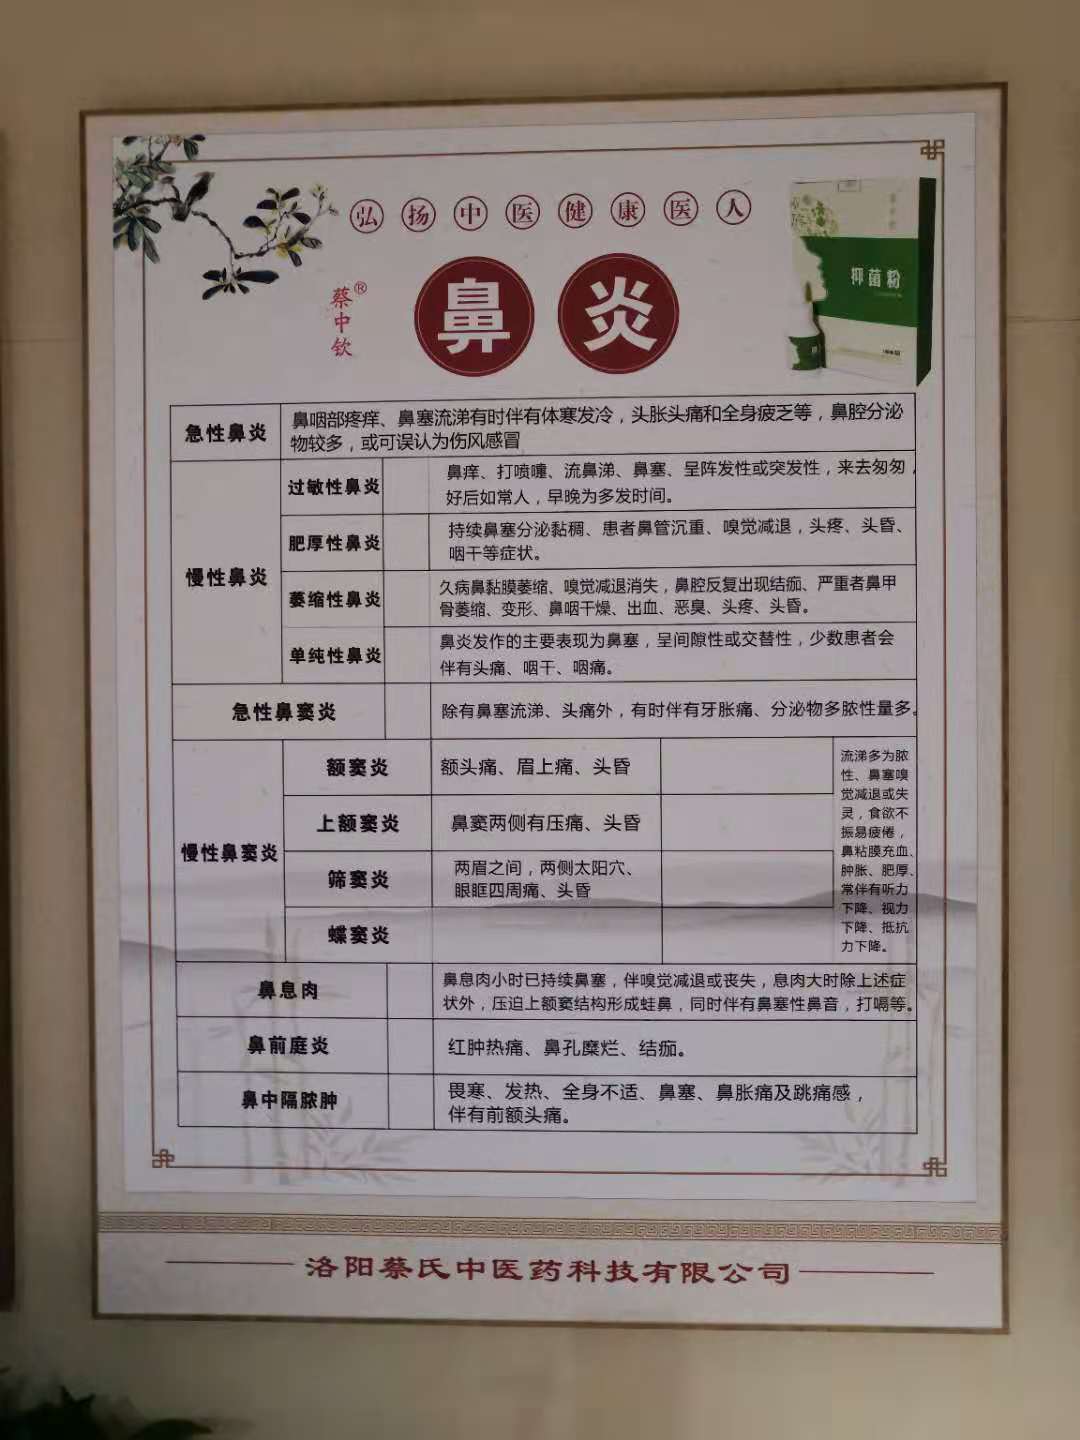 弘扬中医健康医人
蔡中钦®
鼻炎
抑菌粉
急性鼻炎
鼻咽部疼痒、鼻塞流涕有时伴有体寒发冷，头胀头痛和全身疲乏等，鼻腔分泌
物较多，或可误认为伤风感冒
慢性鼻炎
过敏性鼻炎
鼻痒、打喷嚏、流鼻涕、鼻塞、呈阵发性或突发性，来去匆匆，
好后如常人，早晚为多发时间。
肥厚性鼻炎
持续鼻塞分泌黏稠、患者鼻管沉重、嗅觉减退，头疼、头昏、
咽干等症状。
萎缩性鼻炎
久病鼻黏膜萎缩、嗅觉减退消失，鼻腔反复出现结痂、严重者鼻甲
骨萎缩、变形、鼻咽干燥、出血、恶臭、头疼、头昏。
单纯性鼻炎
鼻炎发作的主要表现为鼻塞，呈间隙性或交替性，少数患者会
伴有头痛、咽干、咽痛。
急性鼻窦炎
除有鼻塞流涕、头痛外，有时伴有牙胀痛、分泌物多脓性量多。
慢性鼻窦炎
额窦炎
额头痛、眉上痛、头昏
上额窦炎
鼻窦两侧有压痛、头昏
筛窦炎
两眉之间，两侧太阳穴、
眼眶四周痛、头昏
蝶窦炎
流涕多为脓
性、鼻塞嗅
觉减退或失
灵，食欲不
振易疲倦，
鼻粘膜充血、
肿胀、肥厚、
常伴有听力
下降、视力
下降、抵抗
力下降。
鼻息肉
鼻息肉小时已持续鼻塞，伴嗅觉减退或丧失，息肉大时除上述症
状外，压迫上额窦结构形成蛙鼻，同时伴有鼻塞性鼻音，打嗝等。
鼻前庭炎
红肿热痛、鼻孔糜烂、结痂。
鼻中隔脓肿
畏寒、发热、全身不适、鼻塞、鼻胀痛及跳痛感，
伴有前额头痛。
洛阳蔡氏中医药科技有限公司